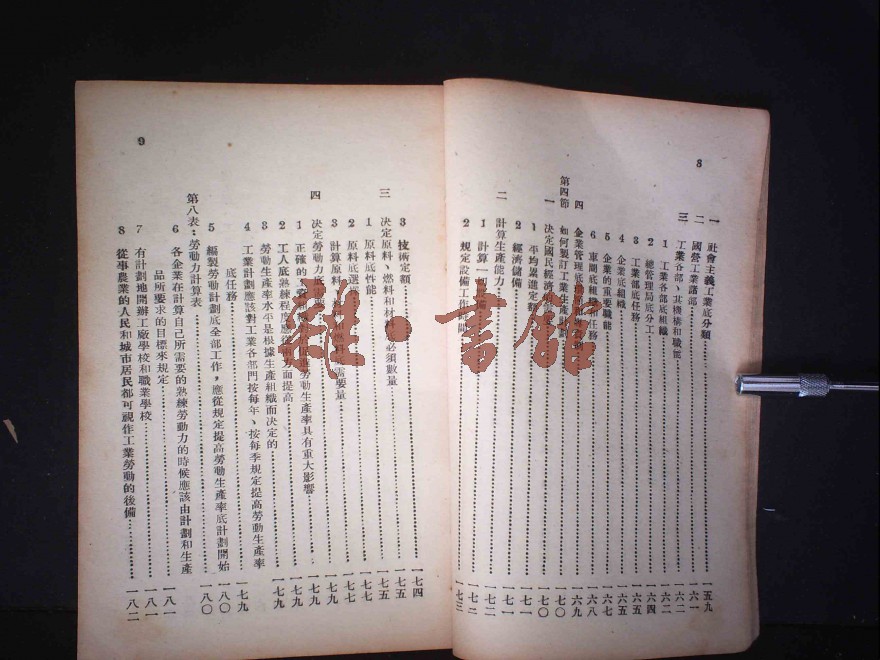 8
一 社會主義工業底分類 一五九
二 國營工業諸部 一六一
三 工業各部、其機構和職能 一六二
1 工業各部底組織 一六二
2 總管理局底分工 一六四
3 工業部底任務 一六五
4 企業底組織 一六五
5 企業的重要職能 一六七
6 車間底組織和任務 一六八
四 企業管理底 一六九
第四節 如何製訂工業生產計劃 一七〇
一 決定國民經濟 一七〇
1 平均累進定額 一七一
2 經濟儲備 一七一
二 計算生產能力 一七二
1 計算一切設備 一七二
2 規定設備工作時間 一七三
9
3 技術定額 一七四
三 決定原料、燃料和材料 必須數量 一七五
1 原料底性能 一七五
2 原料底選擇 一七七
3 計算原料 需要量 一七七
四 決定勞動力底 一七九
1 正確的 勞動生產率具有重大影響 一七九
2 工人底熟練程度應從 方面提高 一七九
3 勞動生產率水平是根據生產組織而決定的 一七九
4 工業計劃應該對工業各部門按每年、按每季規定提高勞動生產率
底任務 一七九
5 編製勞動計劃底全部工作，應從規定提高勞動生產率底計劃開始 一八〇
第八表：勞動力計算表 一八〇
6 各企業在計算自己所需要的熟練勞動力的時候應該由計劃和生產
品所要求的目標來規定 一八一
7 有計劃地開辦工廠學校和職業學校 一八一
8 從事農業的人民和城市居民都可視作工業勞動的後備 一八二
雜·書館